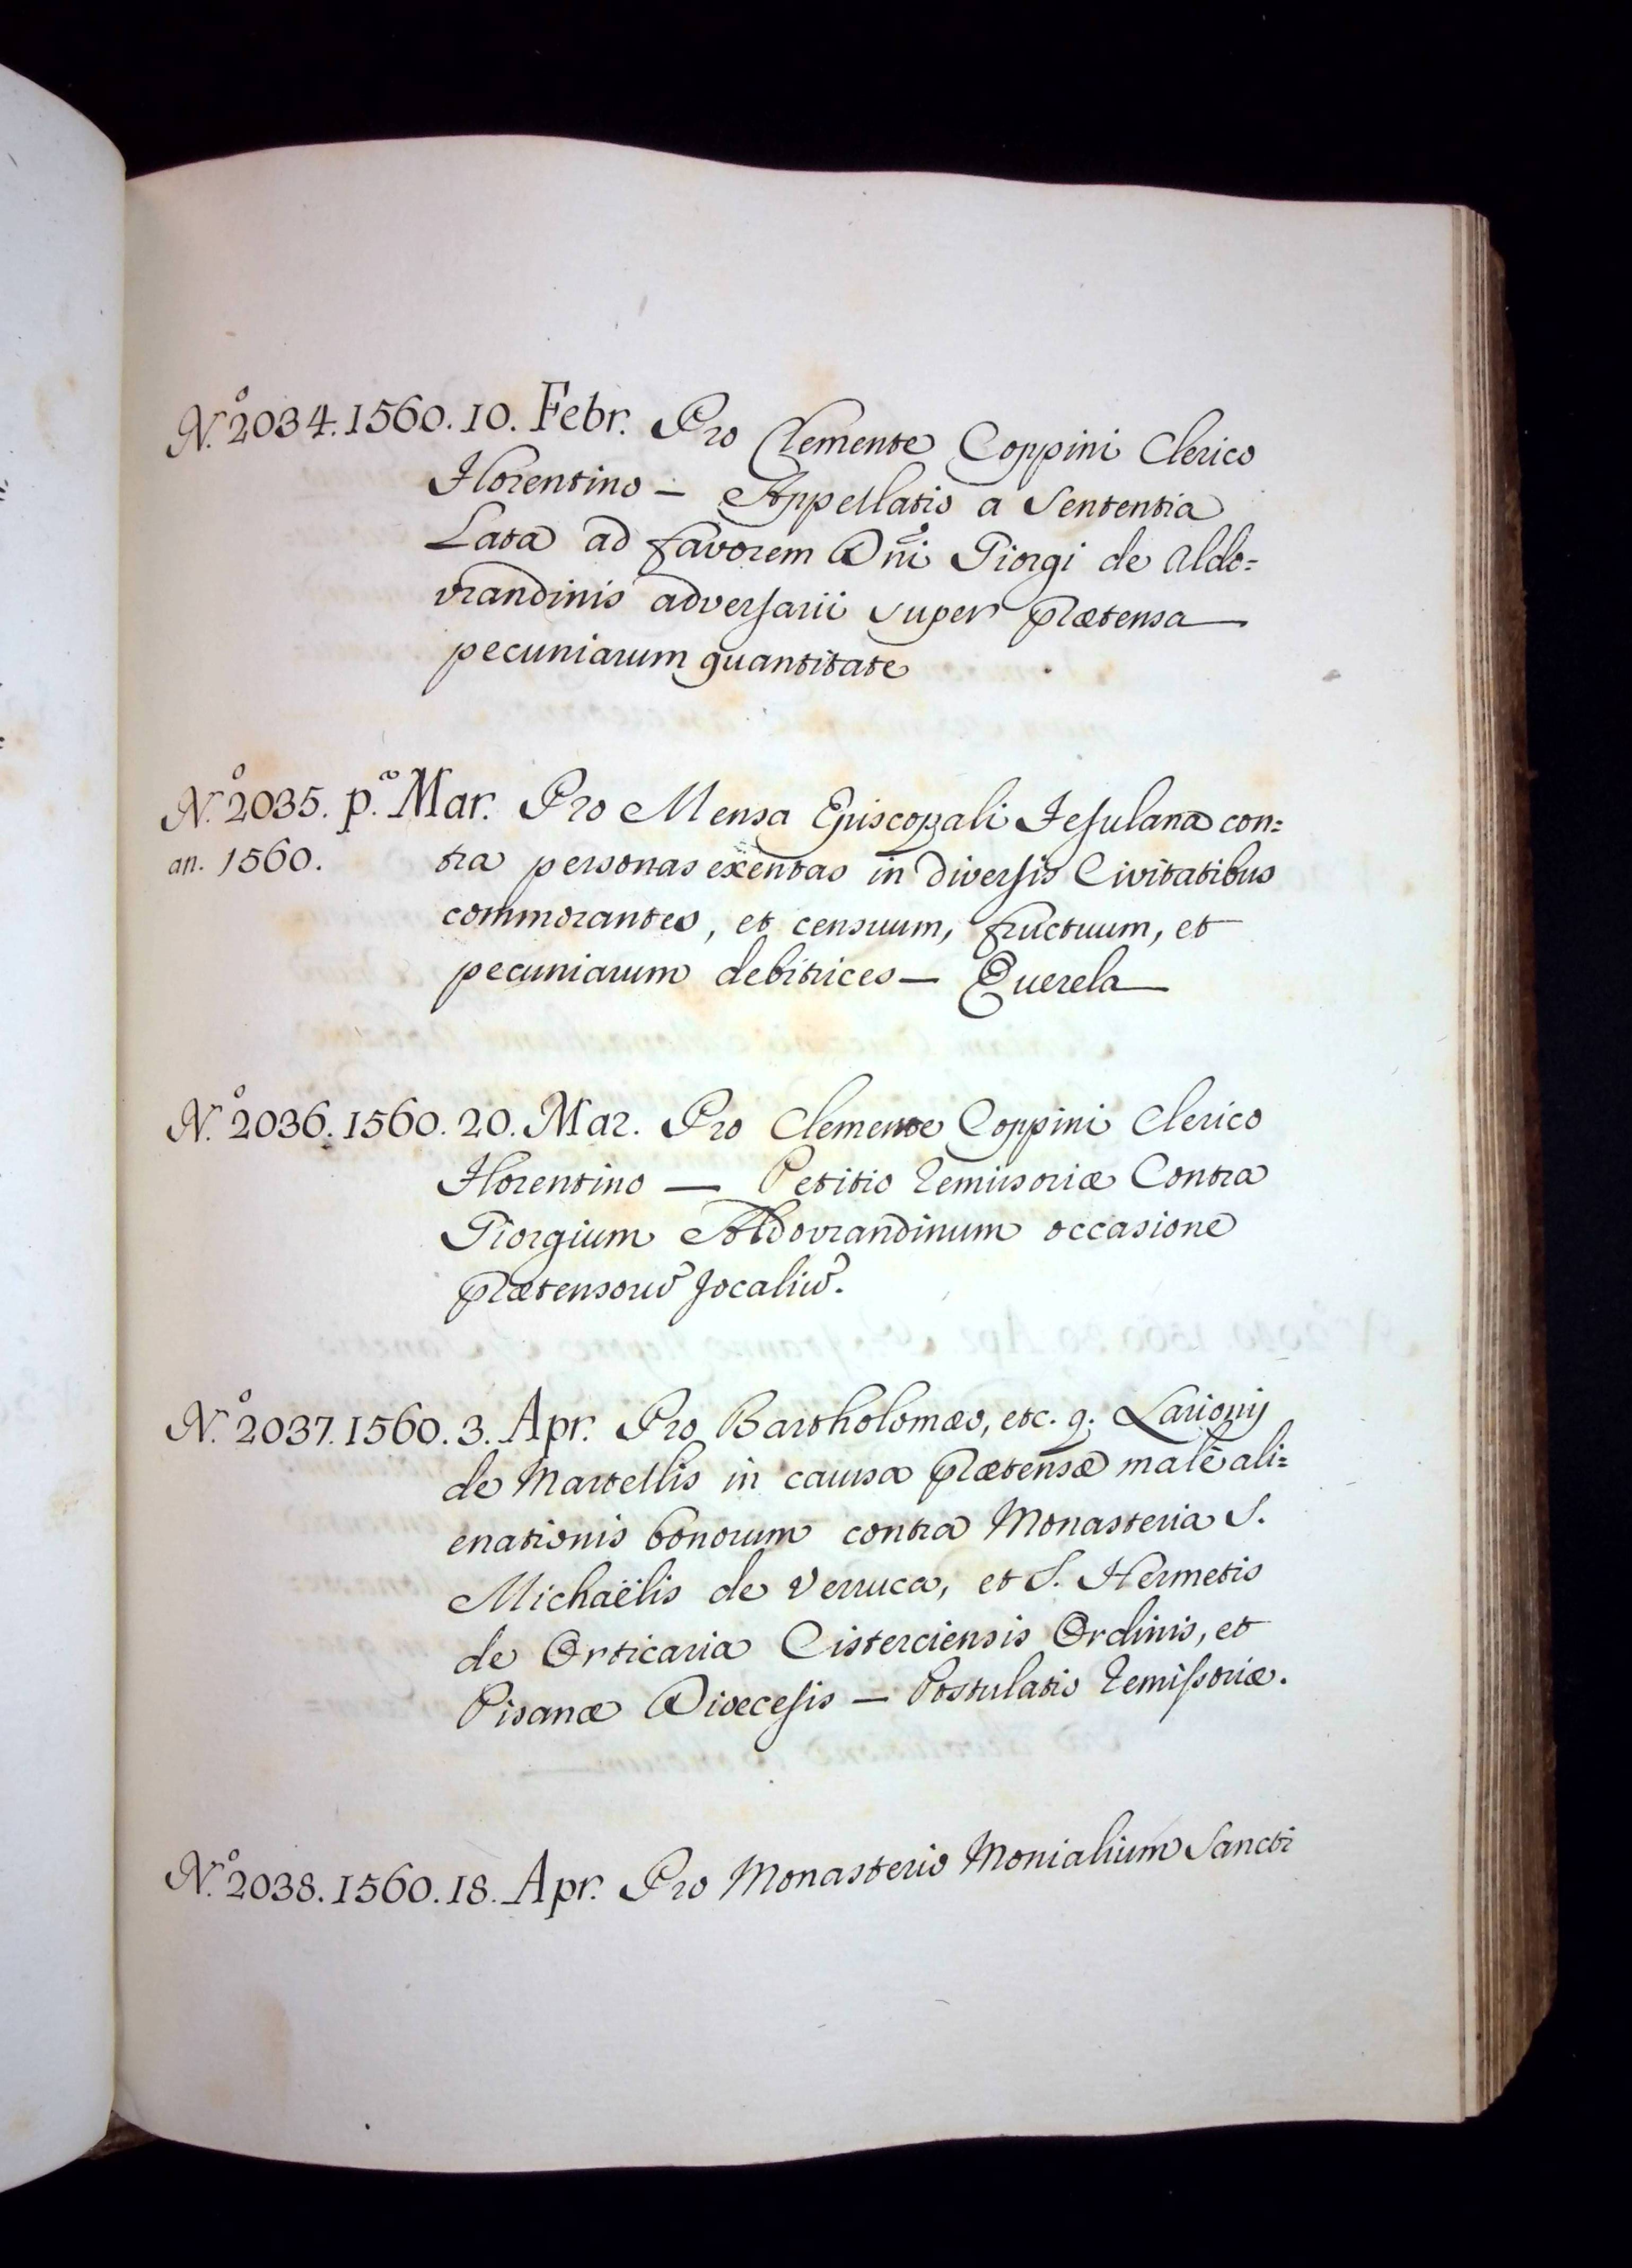 N.º 2034. 1560. 10. Febr. Pro Clemente Coppini Clerico
Florentino — Appellatio a Sententia
Lata ad favorem Dñi Giorgi de Aldo=
vrandinis adversarii super prætensa
pecuniarum quantitate
N.º 2035. p.ª Mar. Pro Mensa Episcopali Fesulana con=
an. 1560. tra personas exentas in diversis Civitatibus
commorantes, et censuum, fructuum, et
pecuniarum debitrices — Querela
N.º 2036. 1560. 20. Mar. Pro Clemente Coppini Clerico
Florentino — Petitio Remissoriæ Contra
Giorgium Aldovrandinum occasione
prætensorũ Jocaliũ.
N.º 2037. 1560. 3. Apr. Pro Bartholomæo, etc. q. Larionij
de Martellis in causa prætensæ malè ali=
enationis bonorum contra Monasteria S.
Michaëlis de Verruca, et S. Hermetis
de Orticaria Cisterciensis Ordinis, et
Pisanæ Diœcesis — Postulatio Remissoriæ.
N.º 2038. 1560. 18. Apr. Pro Monasterio Monialium Sancti